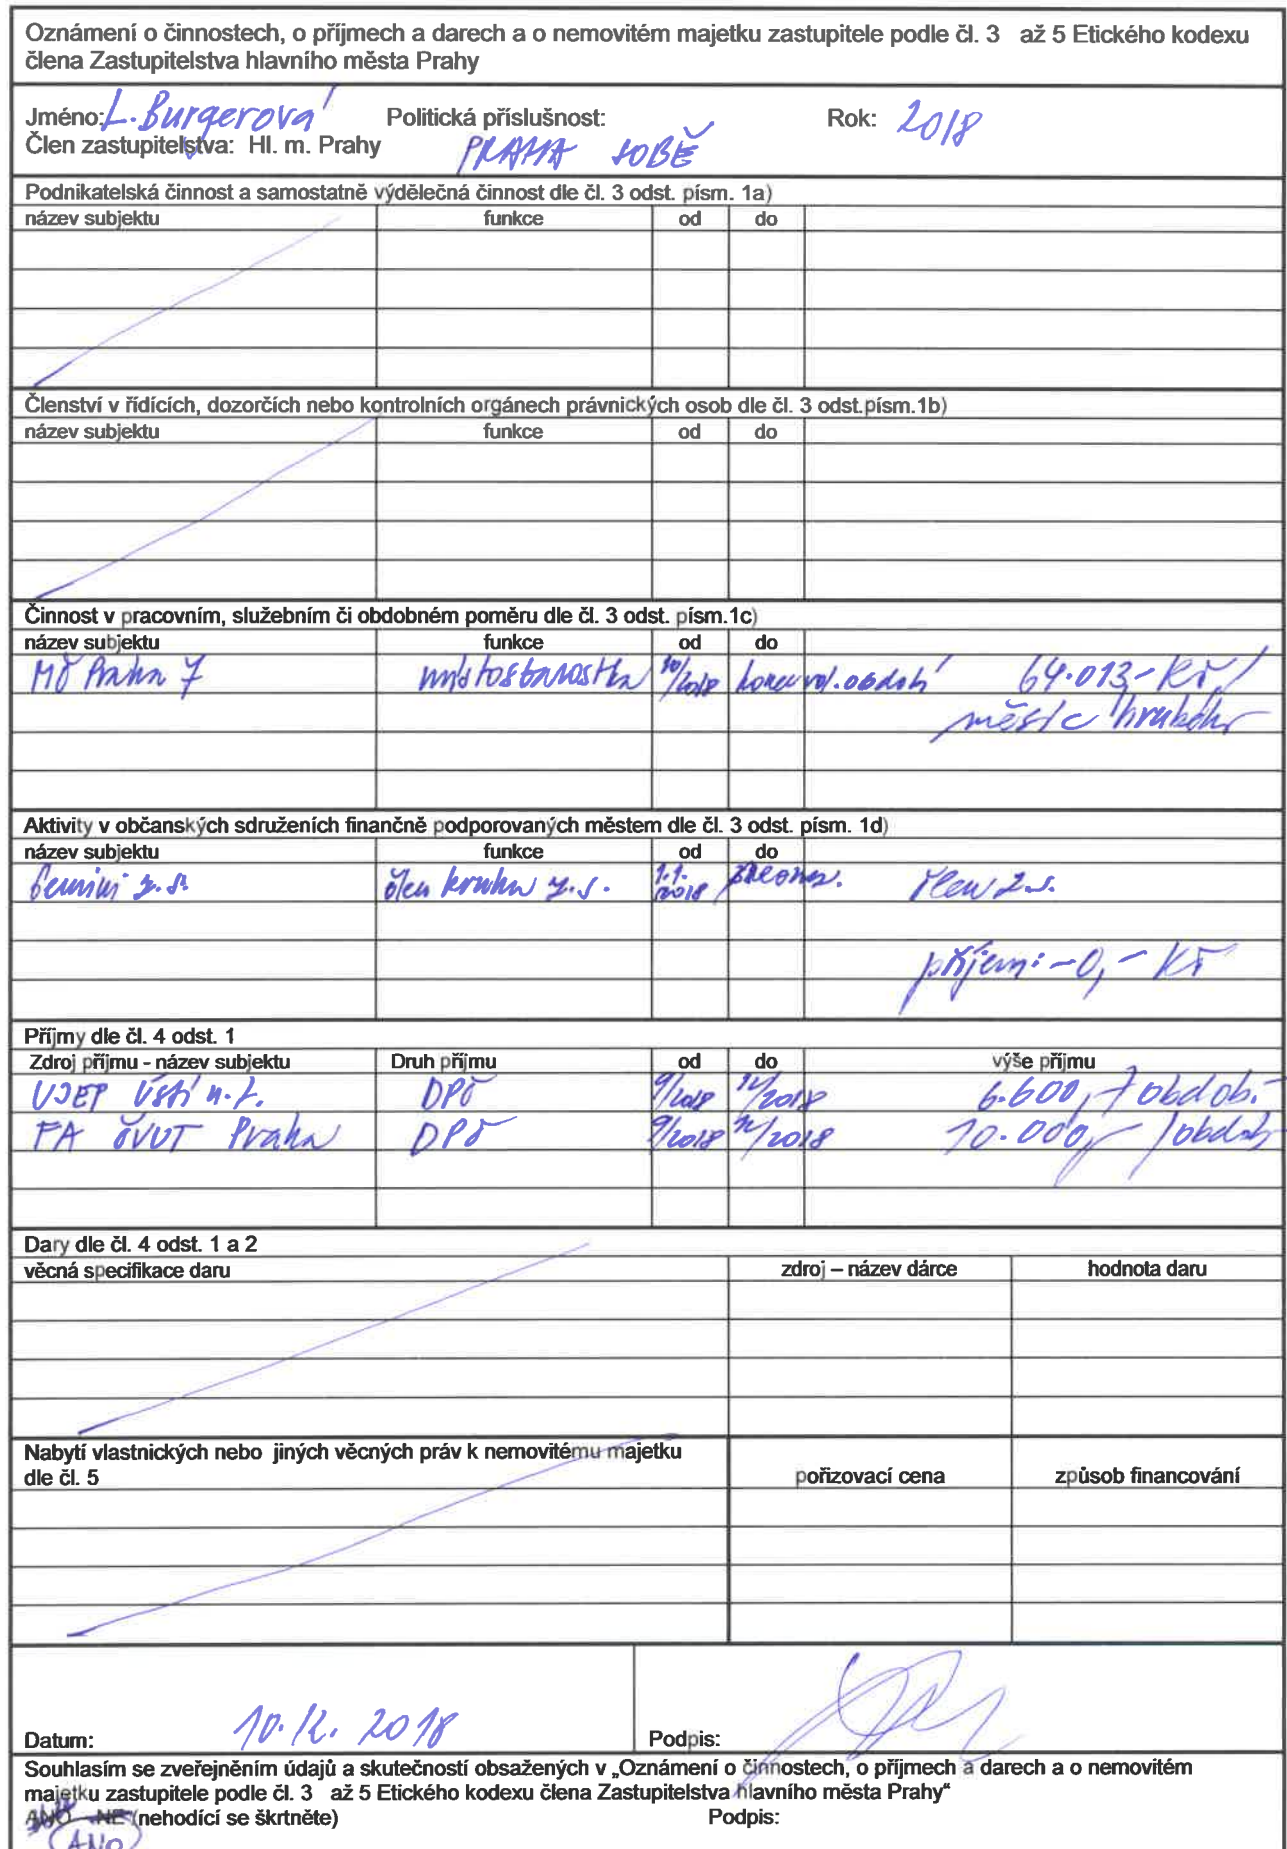 Oznámení o činnostech, o příjmech a darech a o nemovitém majetku zastupitele podle čl. 3 až 5 Etického kodexu
člena Zastupitelstva hlavního města Prahy
Jméno: L. Burgerová Politická příslušnost: Rok: 2018
Člen zastupitelstva: Hl. m. Prahy PRAHA SOBĚ
Podnikatelská činnost a samostatně výdělečná činnost dle čl. 3 odst. písm. 1a)
název subjektu funkce od do
Členství v řídících, dozorčích nebo kontrolních orgánech právnických osob dle čl. 3 odst.písm.1b)
název subjektu funkce od do
Činnost v pracovním, služebním či obdobném poměru dle čl. 3 odst. písm.1c)
název subjektu funkce od do
MČ Praha 7 místostarostka 10/2018 konec vol. období 64.013,- Kč/
měsíc hrubého
Aktivity v občanských sdruženích finančně podporovaných městem dle čl. 3 odst. písm. 1d)
název subjektu funkce od do
z.s. člen kruhu z.s. 1.1. 2018 člen z.s.
příjem: -0,- Kč
Příjmy dle čl. 4 odst. 1
Zdroj příjmu - název subjektu Druh příjmu od do výše příjmu
UJEP Ústí n.L. DPČ 9/2018 12/2018 6.600,-/obdob.
FA ČVUT Praha DPČ 9/2018 12/2018 10.000,-/obdob
Dary dle čl. 4 odst. 1 a 2
věcná specifikace daru zdroj – název dárce hodnota daru
Nabytí vlastnických nebo jiných věcných práv k nemovitému majetku
dle čl. 5 pořizovací cena způsob financování
Datum: 10.12. 2018 Podpis:
Souhlasím se zveřejněním údajů a skutečností obsažených v „Oznámení o činnostech, o příjmech a darech a o nemovitém
majetku zastupitele podle čl. 3 až 5 Etického kodexu člena Zastupitelstva hlavního města Prahy“
ANO NE (nehodící se škrtněte) Podpis:
ANO